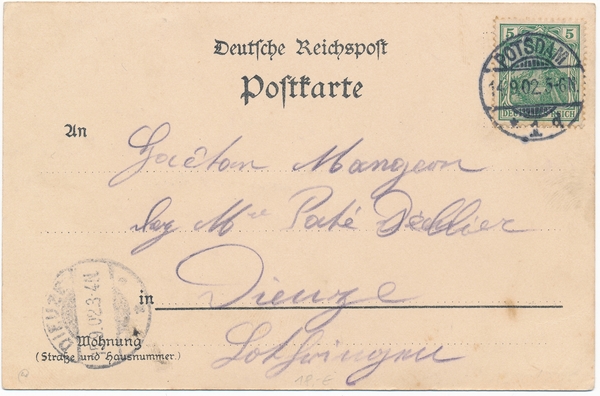 Deutsche Reichspost
Postkarte
5 5
DEUTSCHES REICH
POTSDAM
14.9.02.5-6N.
* 1 d
An
Gaëtan Mangeon
bey Mr Paté Dellier
in Dieuze
Lothringen
Wohnung
(Straße und Hausnummer.)
DIEUZE
9.02.3-4N
18.-€